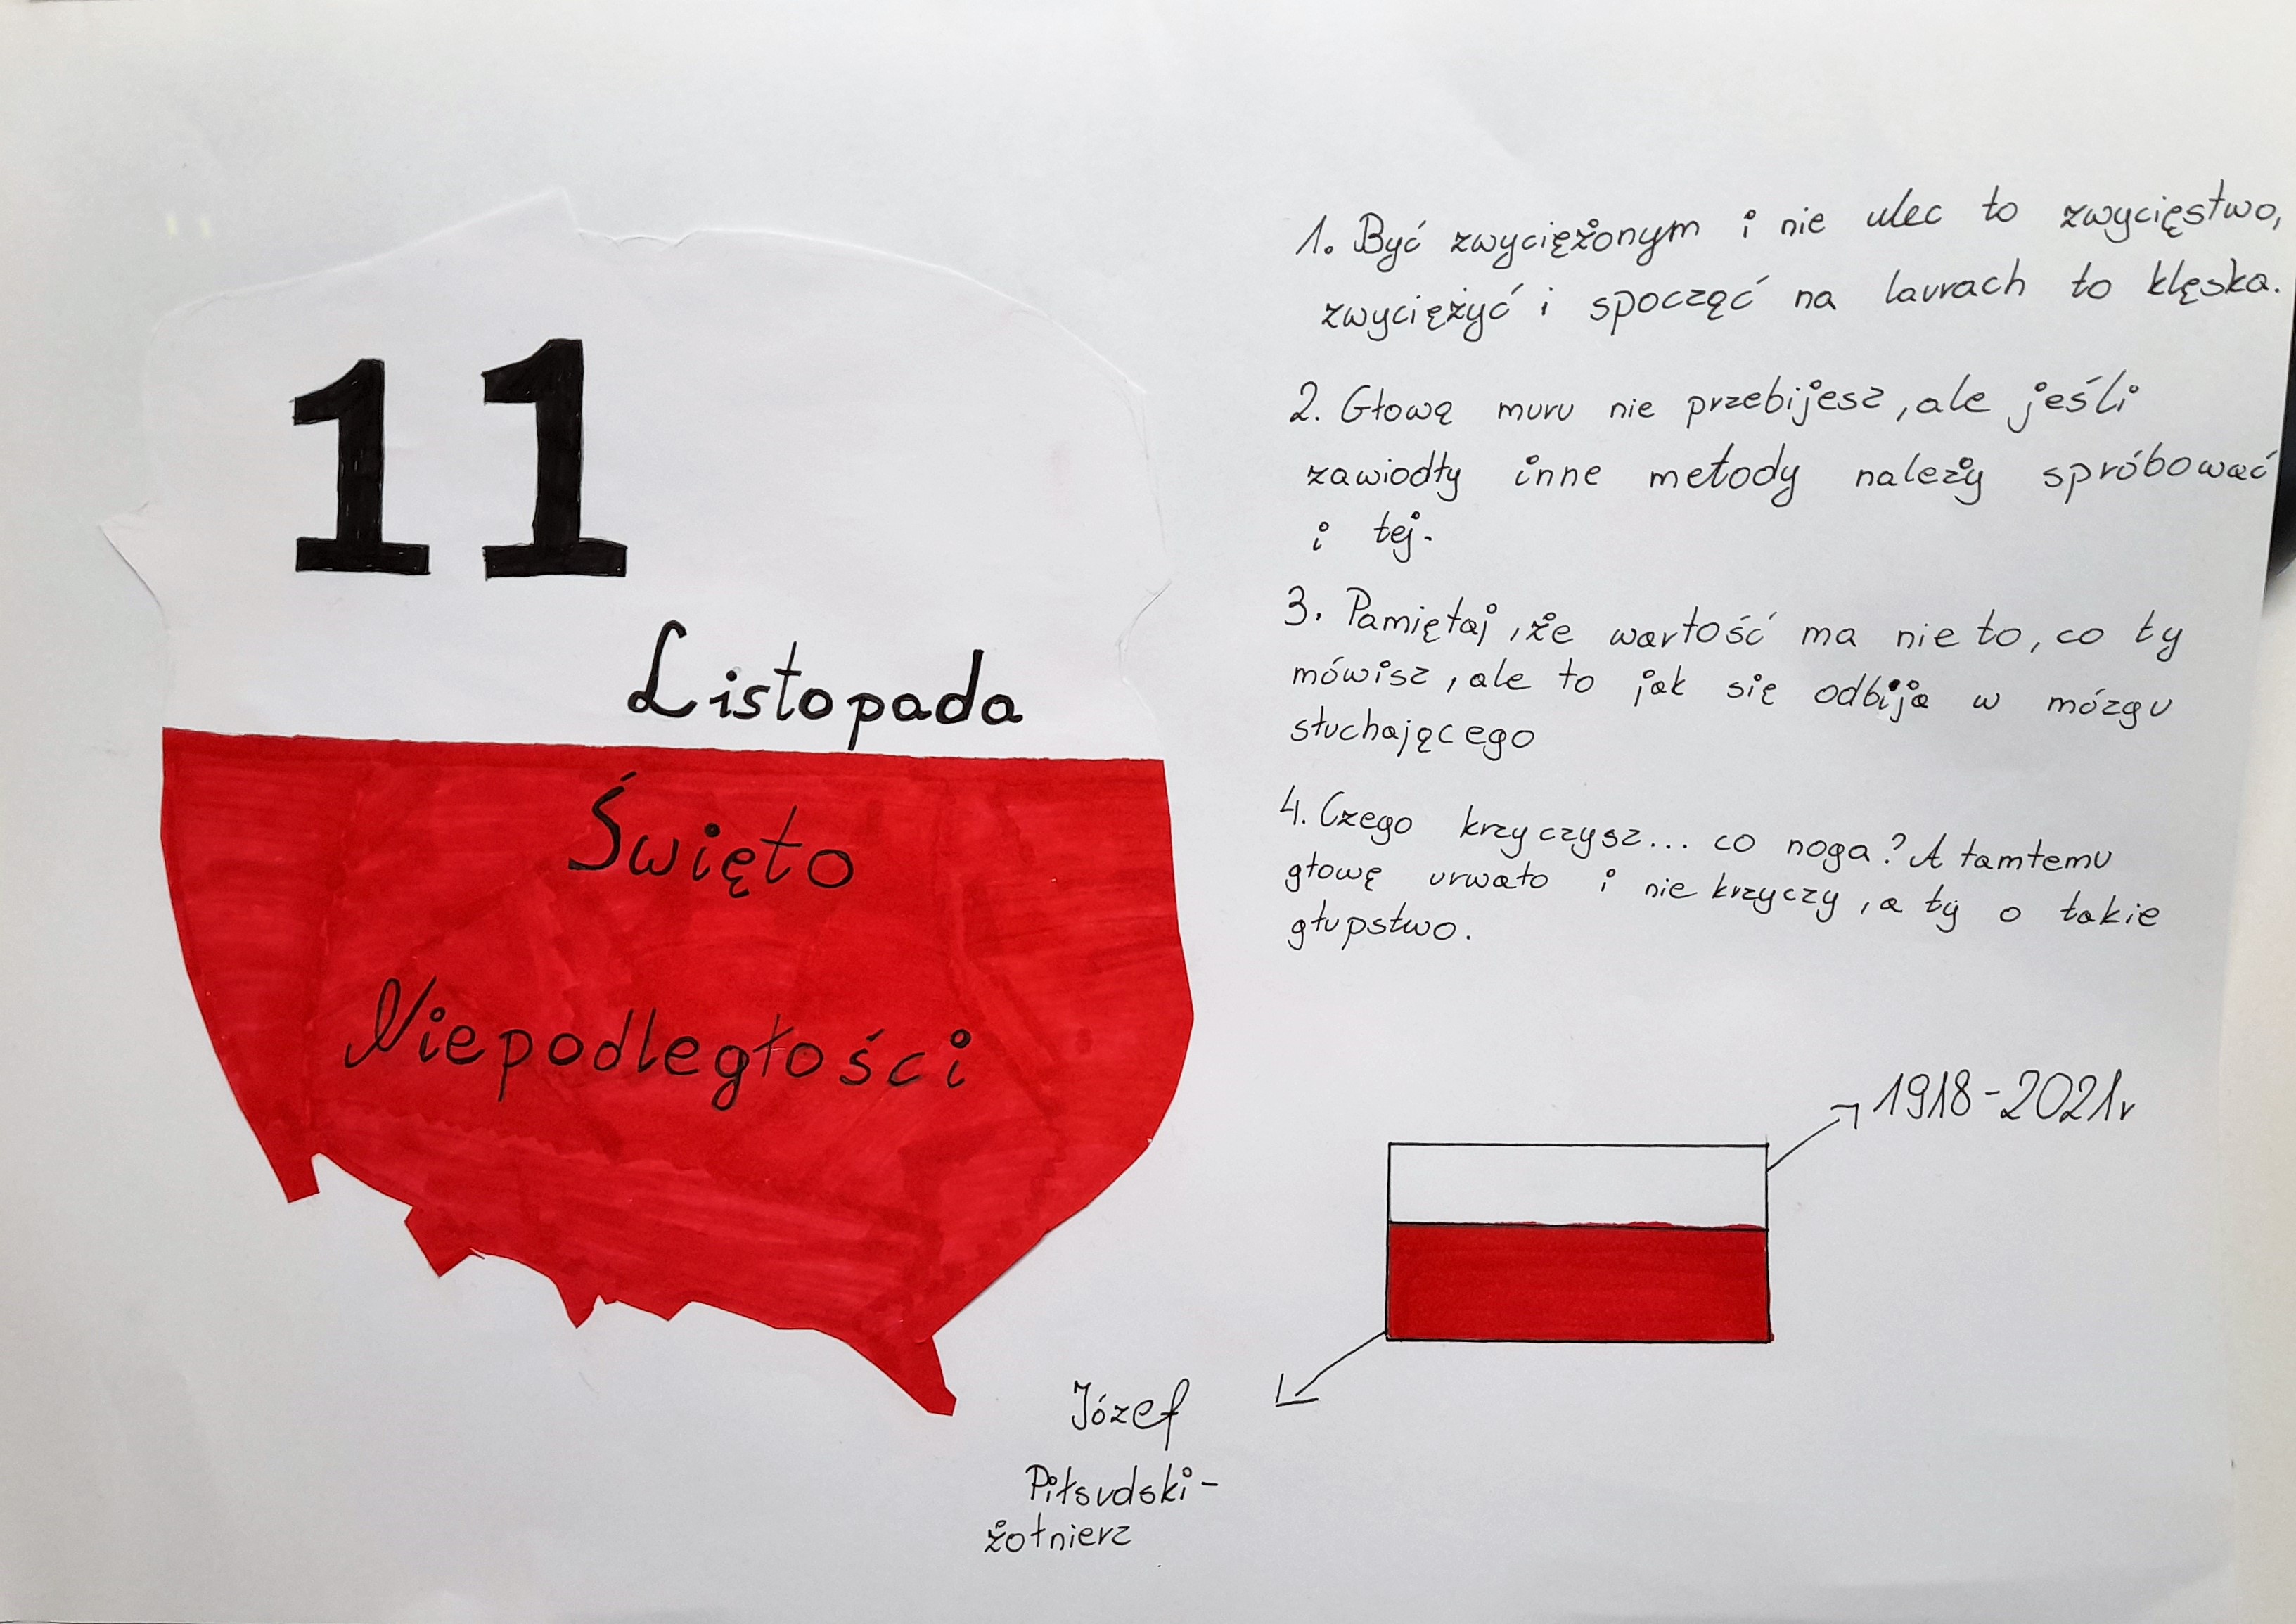 11
Listopada
Święto
Niepodległości
1. Być zwyciężonym i nie ulec to zwycięstwo,
zwyciężyć i spocząć na laurach to klęska.
2. Głową muru nie przebijesz, ale jeśli
zawiodły inne metody należy spróbować
i tej.
3. Pamiętaj, że wartość ma nie to, co ty
mówisz, ale to jak się odbija w mózgu
słuchającego
4. Czego krzyczysz... co noga? A tamtemu
głowę urwało i nie krzyczy, a ty o takie
głupstwo.
1918-2021r
Józef
Piłsudski-
żołnierz